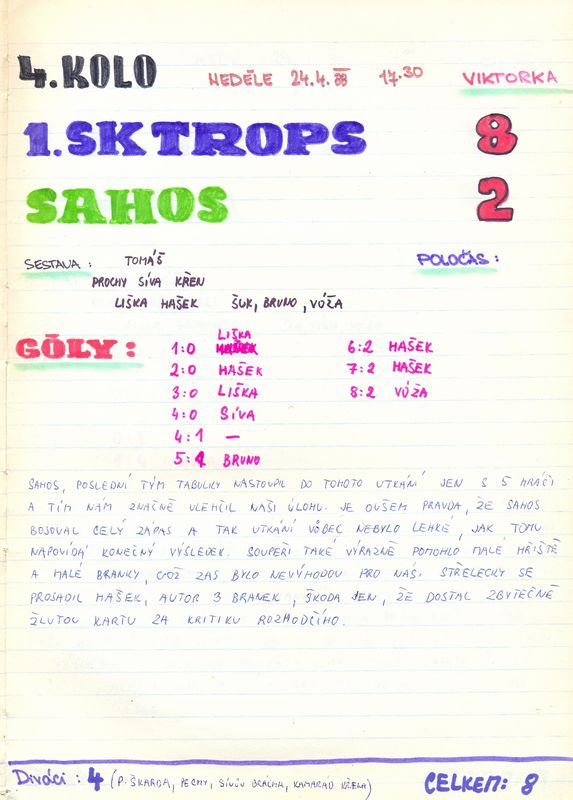 4. KOLO NEDĚLE 24.4. 88 17.30 VIKTORKA
1. SK TROPS 8
SAHOS 2
SESTAVA : TOMÁŠ POLOČAS :
PROCHY SÍVA KŘEN
LIŠKA HAŠEK ŠUK, BRUNO, VÓŽA
GÓLY : 1:0 LIŠKA 6:2 HAŠEK
2:0 HAŠEK 7:2 HAŠEK
3:0 LIŠKA 8:2 VÓŽA
4:0 SÍVA
4:1 —
5:1 BRUNO
SAHOS, POSLEDNÍ TÝM TABULKY NASTOUPIL DO TOHOTO UTKÁNÍ JEN S 5 HRÁČI
A TÍM NÁM ZNAČNĚ ULEHČIL NAŠI ÚLOHU. JE OVŠEM PRAVDA, ŽE SAHOS
BOJOVAL CELÝ ZÁPAS A TAK UTKÁNÍ VŮBEC NEBYLO LEHKÉ, JAK TOMU
NAPOVÍDÁ KONEČNÝ VÝSLEDEK. SOUPEŘI TAKÉ VÝRAZNĚ POMOHLO MALÉ HŘIŠTĚ
A MALÉ BRANKY, COŽ ZAS BYLO NEVÝHODOU PRO NÁS. STŘELECKY SE
PROSADIL HAŠEK, AUTOR 3 BRANEK, ŠKODA JEN, ŽE DOSTAL ZBYTEČNĚ
ŽLUTOU KARTU ZA KRITIKU ROZHODČÍHO.
Diváci : 4 (P. ŠKARDA, PECHY, SÍVŮV BRÁCHA, KAMARÁD KŘENA) CELKEM: 8